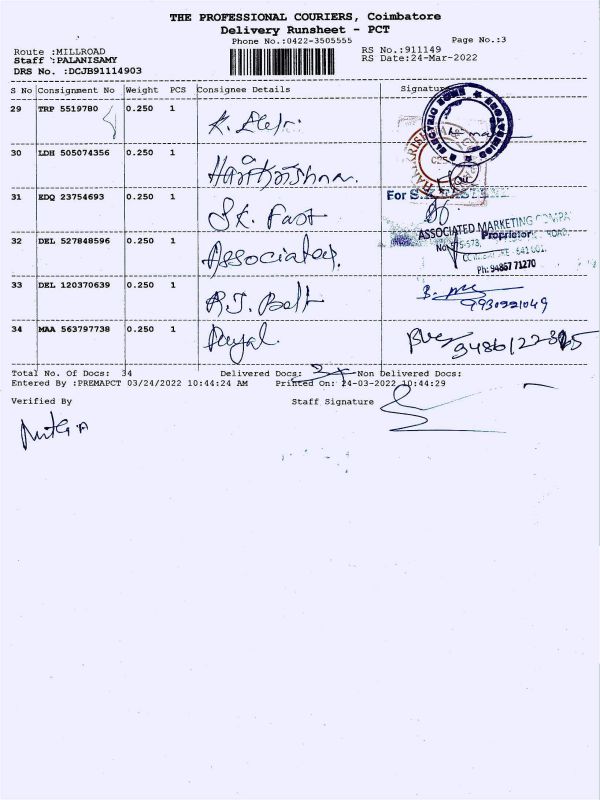 THE PROFESSIONAL COURIERS, Coimbatore
Delivery Runsheet - PCT
Phone No.:0422-3505555
Page No.:3
Route :MILLROAD
RS No.:911149
Staff :PALANISAMY
RS Date:24-Mar-2022
DRS No. :DCJB91114903
S No Consignment No Weight PCS Consignee Details Signature
29 TRP 5519780 0.250 1
30 LDH 505074356 0.250 1 Harikrishnan.
31 EDQ 23754693 0.250 1 SK. Fast
For S.K.
32 DEL 527848596 0.250 1 Associates.
ASSOCIATED MARKETING COMPA
Proprietor
641 001.
Ph: 94867 71270
33 DEL 120370639 0.250 1 R.J. Belt
9930921049
34 MAA 563797738 0.250 1 Payal
Total No. Of Docs: 34 Delivered Docs: Non Delivered Docs:
Entered By :PREMAPCT 03/24/2022 10:44:24 AM Printed On: 24-03-2022 10:44:29
Verified By Staff Signature